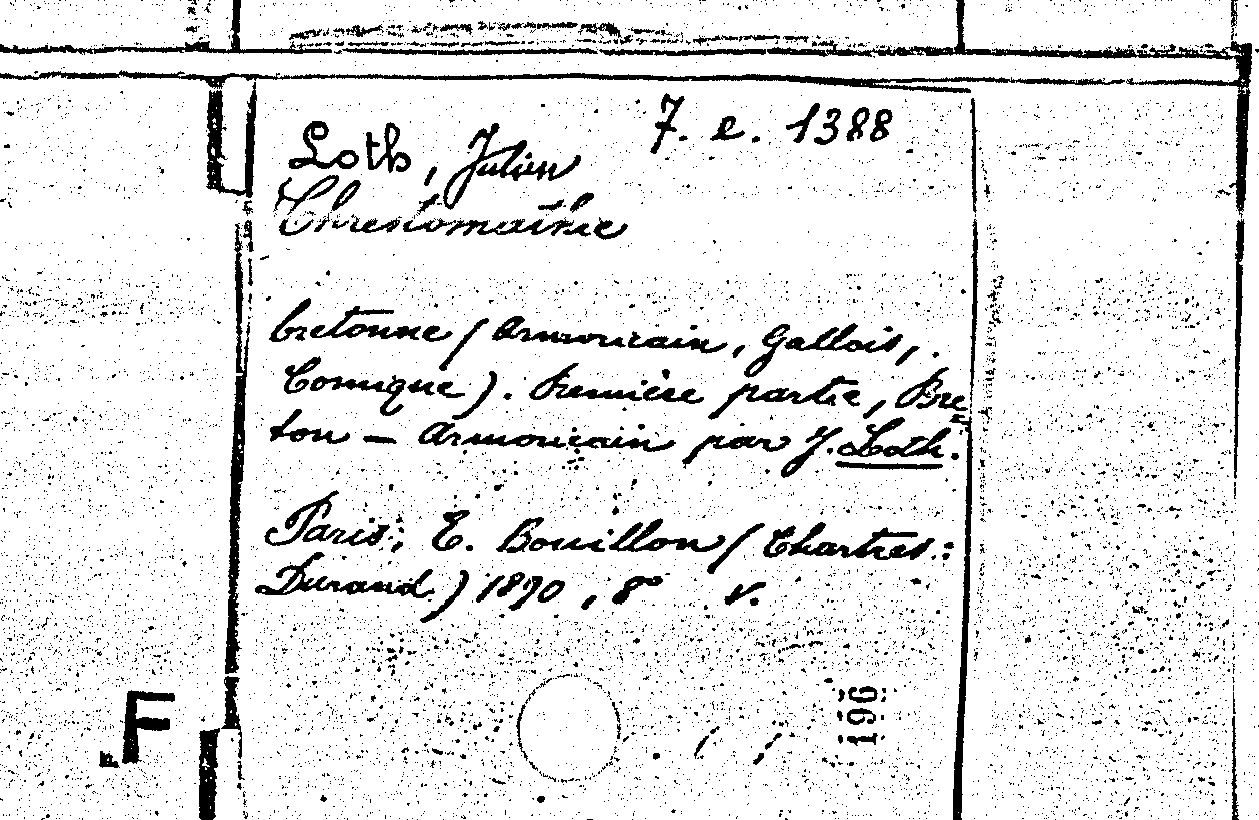 7. e. 1388
Loth, Julien
Chrestomathie
bretonne (Armoricain, Gallois,
Cornique). Première partie, Bre=
ton - Armoricain par J. Loth.
Paris, E. Bouillon (Chartres:
Durand.) 1890, 8° v.
196
F